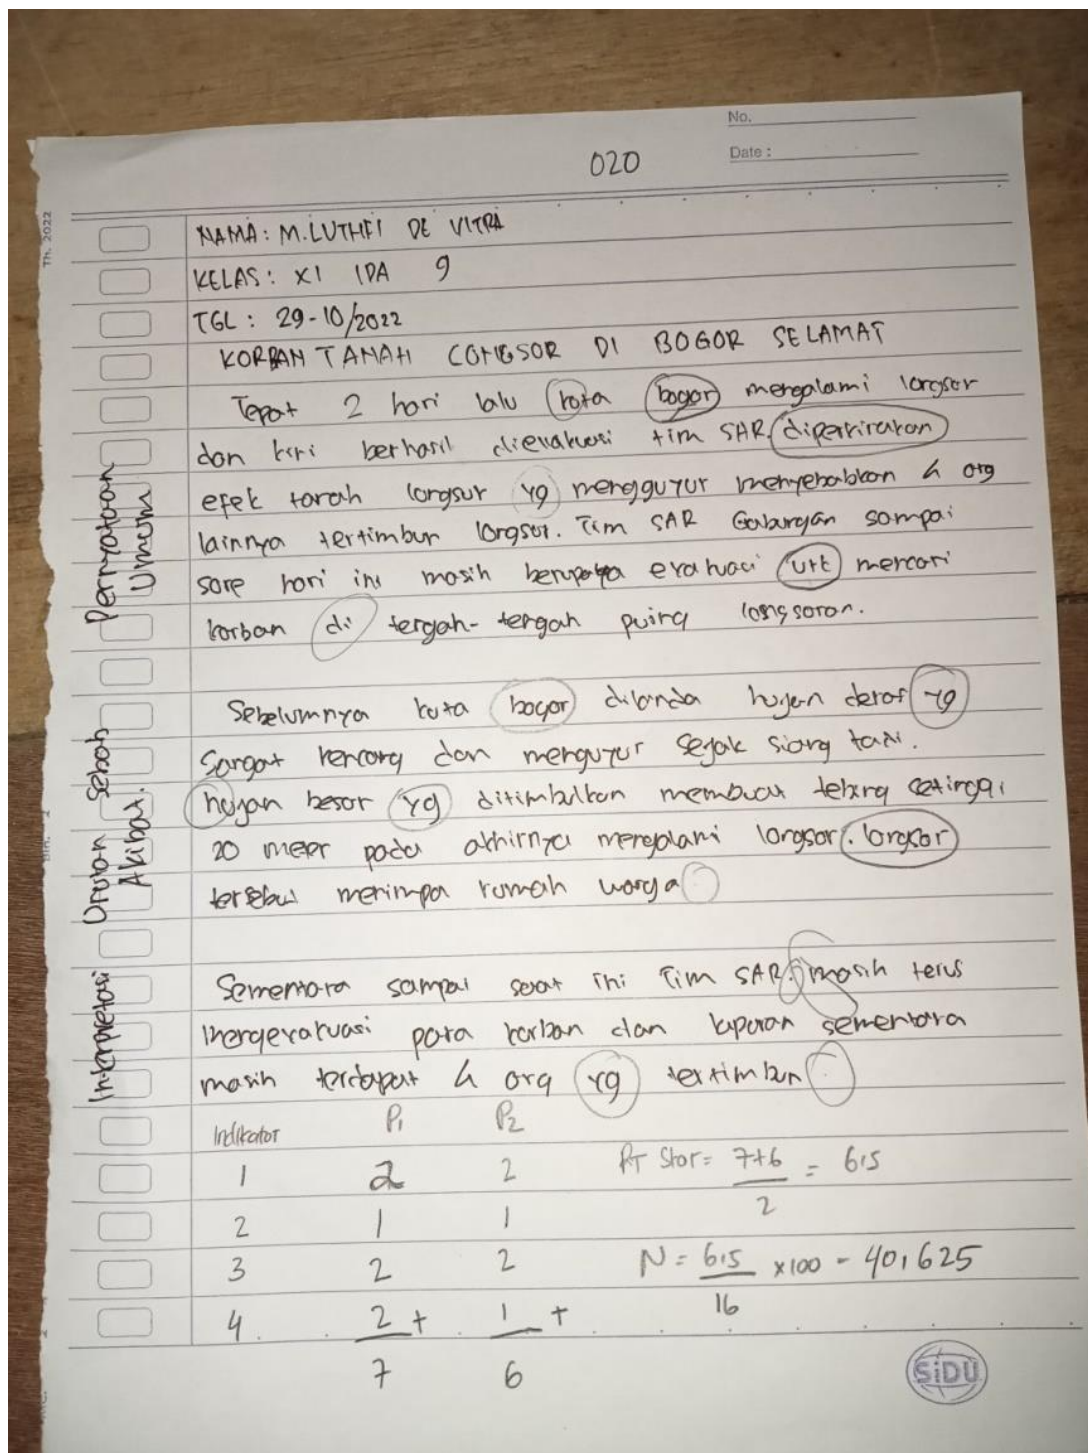 No.
Date :
020
Th. 2022
NAMA: M.LUTHFI DE VITRA
KELAS: XI IPA 9
TGL : 29-10/2022
KORBAN TANAH LONGSOR DI BOGOR SELAMAT
Tepat 2 hari lalu kota bogor mengalami longsor
dan kini berhasil dievakuasi tim SAR. diperkirakan
efek tanah longsur yg mengguyur menyebabkan 4 org
lainnya tertimbun longsor. Tim SAR Gabungan sampai
sore hari ini masih berupaya evakuasi utk mencari
korban di tengah-tengah puing longsoran.
Pernyataan
Umum
Sebelumnya kota bogor dilanda hujan deras yg
Sangat kencang dan menguyur sejak siang tadi.
hujan besar yg ditimbulkan membuat tebing setinggi
20 meter pada akhirnya mengalami longsor. longsor
tersebut menimpa rumah warga
Urutan Sebab
Akibat.
Sementara sampai saat ini Tim SAR. masih terus
mengevakuasi para korban dan laporan sementara
masih terdapat 4 org yg tertimbun
Interpretasi
Indikator P1 P2
1 2 2 RT Skor = 7+6 = 6,5
2
2 1 1
3 2 2 N = 6,5 x100 = 40,625
16
4. 2 + 1 +
7 6
SiDU